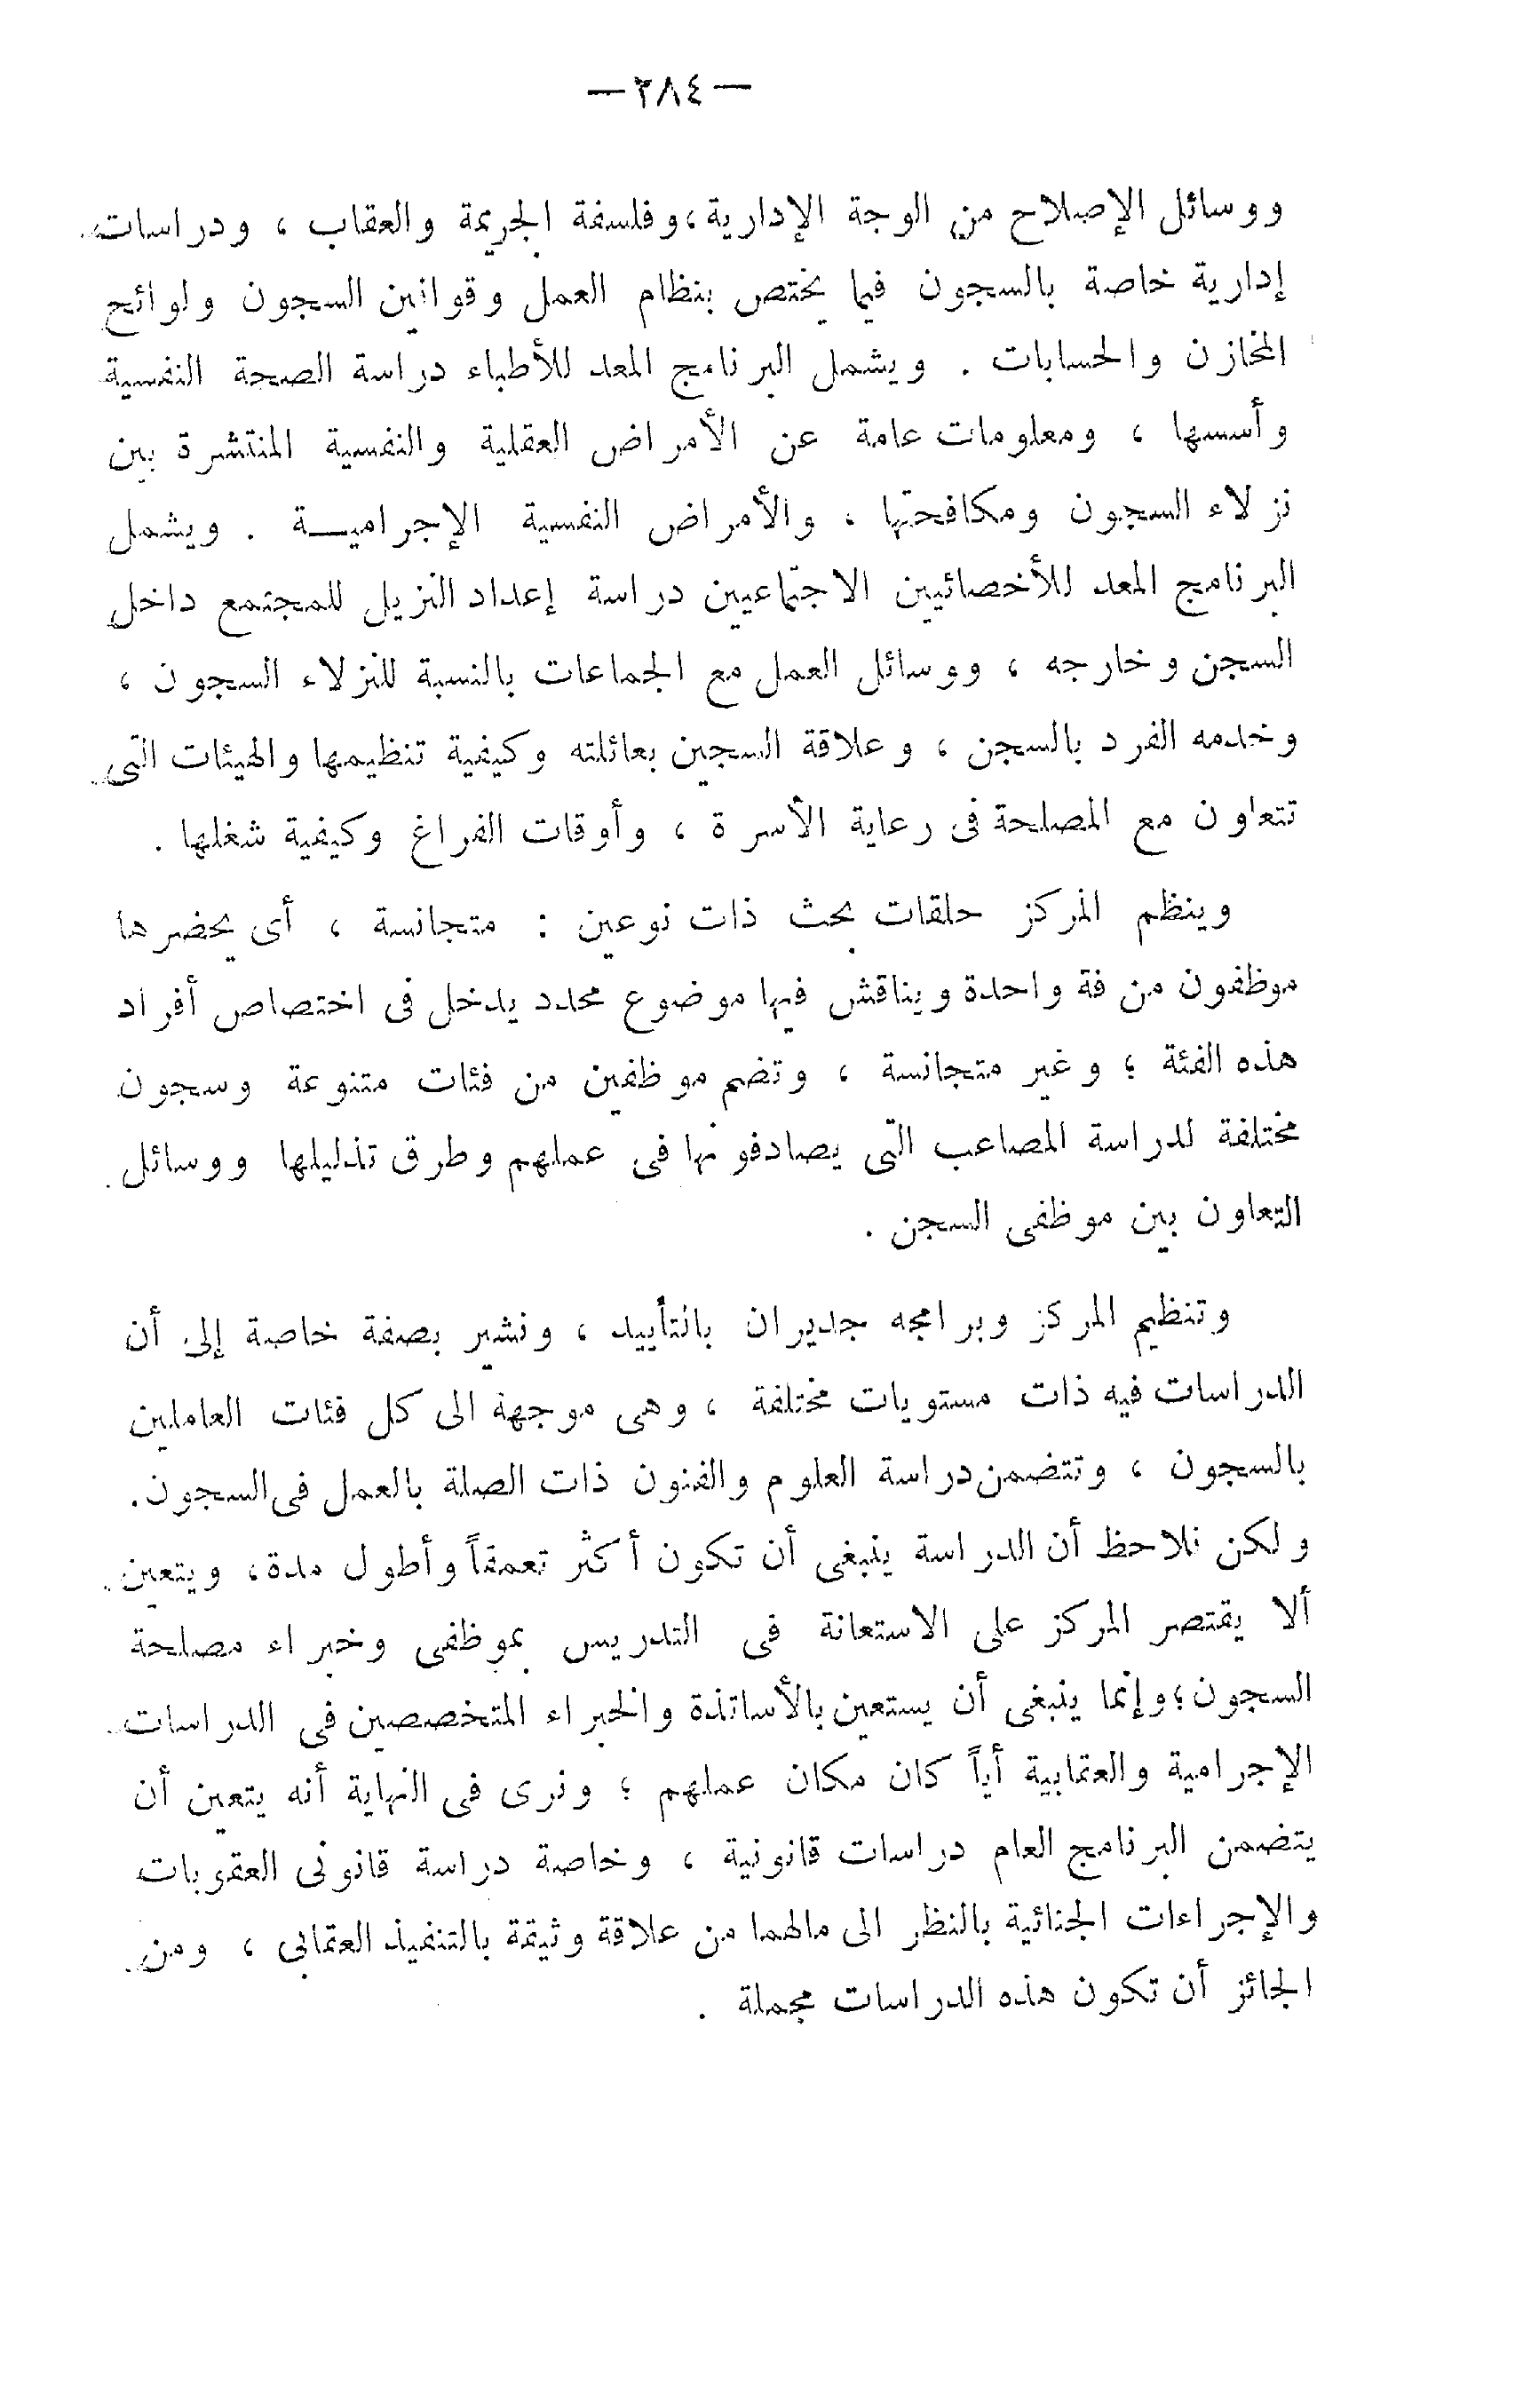 — ٢٨٤ —
ووسائل الإصلاح من الوجة الإدارية، وفلسفة الجريمة والعقاب ، ودراسات
إدارية خاصة بالسجون فيما يختص بنظام العمل وقوانين السجون ولوائح
المخازن والحسابات . ويشمل البرنامج المعد للأطباء دراسة الصحة النفسية
وأسسها ، ومعلومات عامة عن الأمراض العقلية والنفسية المنتشرة بين
نزلاء السجون ومكافحتها ، والأمراض النفسية الإجراميـــة . ويشمل
البرنامج المعد للأخصائيين الاجتماعيين دراسة إعداد النزيل للمجتمع داخل
السجن وخارجه ، ووسائل العمل مع الجماعات بالنسبة للنزلاء السجون ،
وخدمه الفرد بالسجن ، وعلاقة السجين بعائلته وكيفية تنظيمها والهيئات التى
تتعاون مع المصلحة فى رعاية الأسرة ، وأوقات الفراغ وكيفية شغلها .
وينظم المركز حلقات بحث ذات نوعين : متجانسة ، أى يحضرها
موظفون من فة واحدة ويناقش فيها موضوع محدد يدخل فى اختصاص أفراد
هذه الفئة ؛ وغير متجانسة ، وتضم موظفين من فئات متنوعة وسجون
مختلفة لدراسة المصاعب التى يصادفونها فى عملهم وطرق تذليلها ووسائل
التعاون بين موظفى السجن .
وتنظيم المركز وبرامجه جديران بالتأييد ، ونشير بصفة خاصة إلى أن
الدراسات فيه ذات مستويات مختلفة ، وهى موجهة الى كل فئات العاملين
بالسجون ، وتتضمن دراسة العلوم والفنون ذات الصلة بالعمل فى السجون.
ولكن نلاحظ أن الدراسة ينبغى أن تكون أكثر تعمقاً وأطول مدة، ويتعين
ألا يقتصر المركز على الاستعانة فى التدريس بموظفى وخبراء مصلحة
السجون؛ وإنما ينبغى أن يستعين بالأساتذة والخبراء المتخصصين فى الدراسات
الإجرامية والعقابية أياً كان مكان عملهم ؛ ونرى فى النهاية أنه يتعين أن
يتضمن البرنامج العام دراسات قانونية ، وخاصة دراسة قانونى العقوبات
والإجراءات الجنائية بالنظر الى مالهما من علاقة وثيقة بالتنفيذ العقابى ، ومن
الجائز أن تكون هذه الدراسات مجملة .